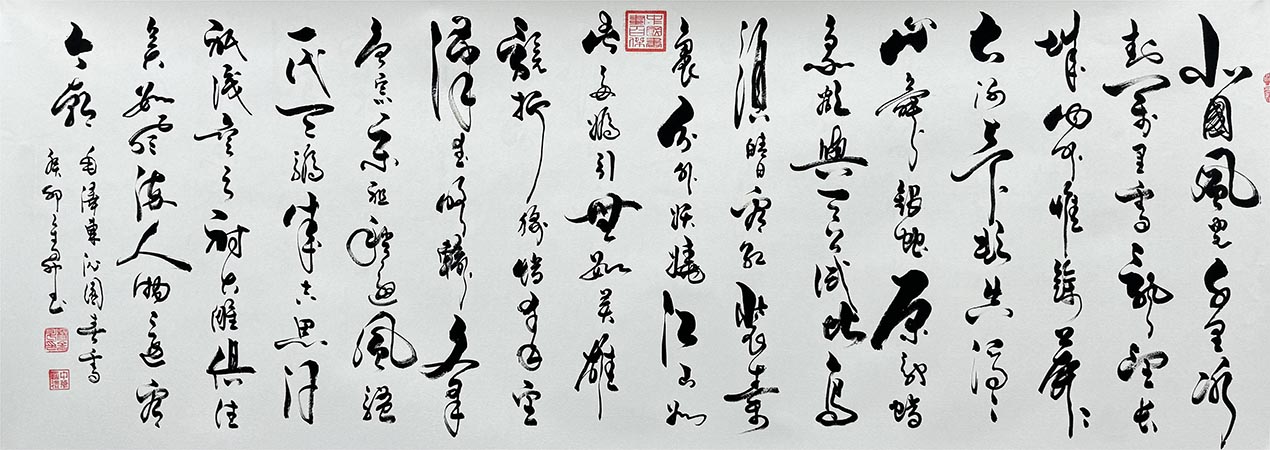 北國風光千里冰
封萬里雪飄望長
城內外惟餘莽莽
大河上下頓失滔滔
山舞銀蛇原馳蠟
象欲與天公試比高
須晴日看紅裝素
裹分外妖嬈江山如
此多嬌引無數英雄
競折腰惜秦皇
漢武略輸文采
唐宗宋祖稍遜風騷
一代天驕成吉思汗
祇識彎弓射大雕俱往
矣數風流人物還看
今朝
毛澤東沁園春雪
癸卯